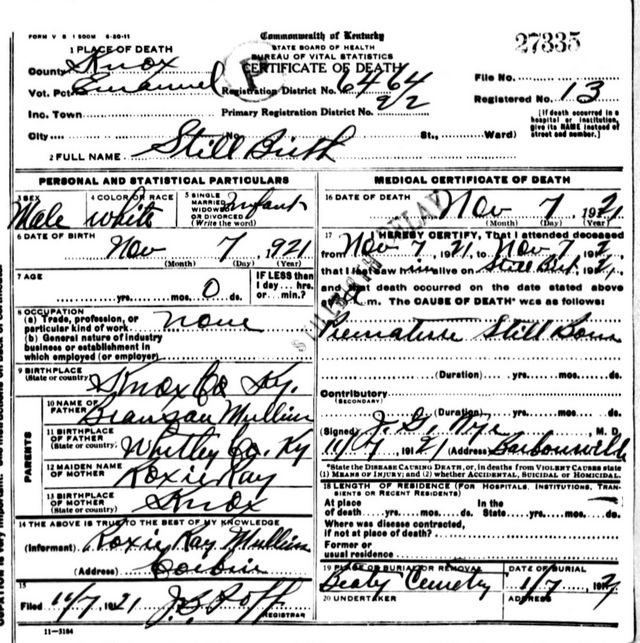 FORM V S 1 500M 6-20-11
Commonwealth of Kentucky
STATE BOARD OF HEALTH
BUREAU OF VITAL STATISTICS
CERTIFICATE OF DEATH
27335
1 PLACE OF DEATH
County Knox
Vot. Pct. Emanuel Registration District No. 6464
File No.
Inc. Town Primary Registration District No. 22
Registered No. 13
City No. St., Ward)
[If death occurred in a hospital or institution, give its NAME instead of street and number.]
2 FULL NAME Still Birth
PERSONAL AND STATISTICAL PARTICULARS
3 SEX Male
4 COLOR OR RACE White
5 SINGLE MARRIED WIDOWED OR DIVORCED (Write the word) Infant
6 DATE OF BIRTH Nov 7, 921
(Month) (Day) (Year)
7 AGE yrs. mos. 0 ds.
IF LESS than 1 day... hrs. or min.?
8 OCCUPATION
(a) Trade, profession, or particular kind of work none
(b) General nature of industry business or establishment in which employed (or employer)
9 BIRTHPLACE (State or country) Knox Co Ky.
PARENTS
10 NAME OF FATHER Mullins
11 BIRTHPLACE OF FATHER (State or country) Whitley Co. Ky
12 MAIDEN NAME OF MOTHER Roxie Kay
13 BIRTHPLACE OF MOTHER (State or country) Knox
14 THE ABOVE IS TRUE TO THE BEST OF MY KNOWLEDGE
(Informant) Roxie Kay Mullins
(Address) Corbin
15
Filed 11/7 1921
REGISTRAR
11-3184
MEDICAL CERTIFICATE OF DEATH
16 DATE OF DEATH Nov 7, 1921
(Month) (Day) (Year)
17 I HEREBY CERTIFY, That I attended deceased
from Nov 7, 1921, to Nov 7, 192
that I last saw him alive on Still Birth, 1921,
and that death occurred on the date stated above
at m. The CAUSE OF DEATH* was as follows:
Premature Still Born
(Duration) yrs. mos. ds.
Contributory
(SECONDARY)
(Duration) yrs. mos. ds.
(Signed) J. G. M. D.
11/7 1921 (Address) Barbourville
*State the DISEASE CAUSING DEATH, or, in deaths from VIOLENT CAUSES state (1) MEANS OF INJURY; and (2) whether ACCIDENTAL, SUICIDAL or HOMICIDAL.
18 LENGTH OF RESIDENCE (FOR HOSPITALS, INSTITUTIONS, TRANSIENTS OR RECENT RESIDENTS)
At place of death yrs. mos. ds. In the State yrs. mos. ds.
Where was disease contracted, if not at place of death?
Former or usual residence
19 PLACE OF BURIAL OR REMOVAL Cemetry
DATE OF BURIAL 11/7 192
20 UNDERTAKER
ADDRESS